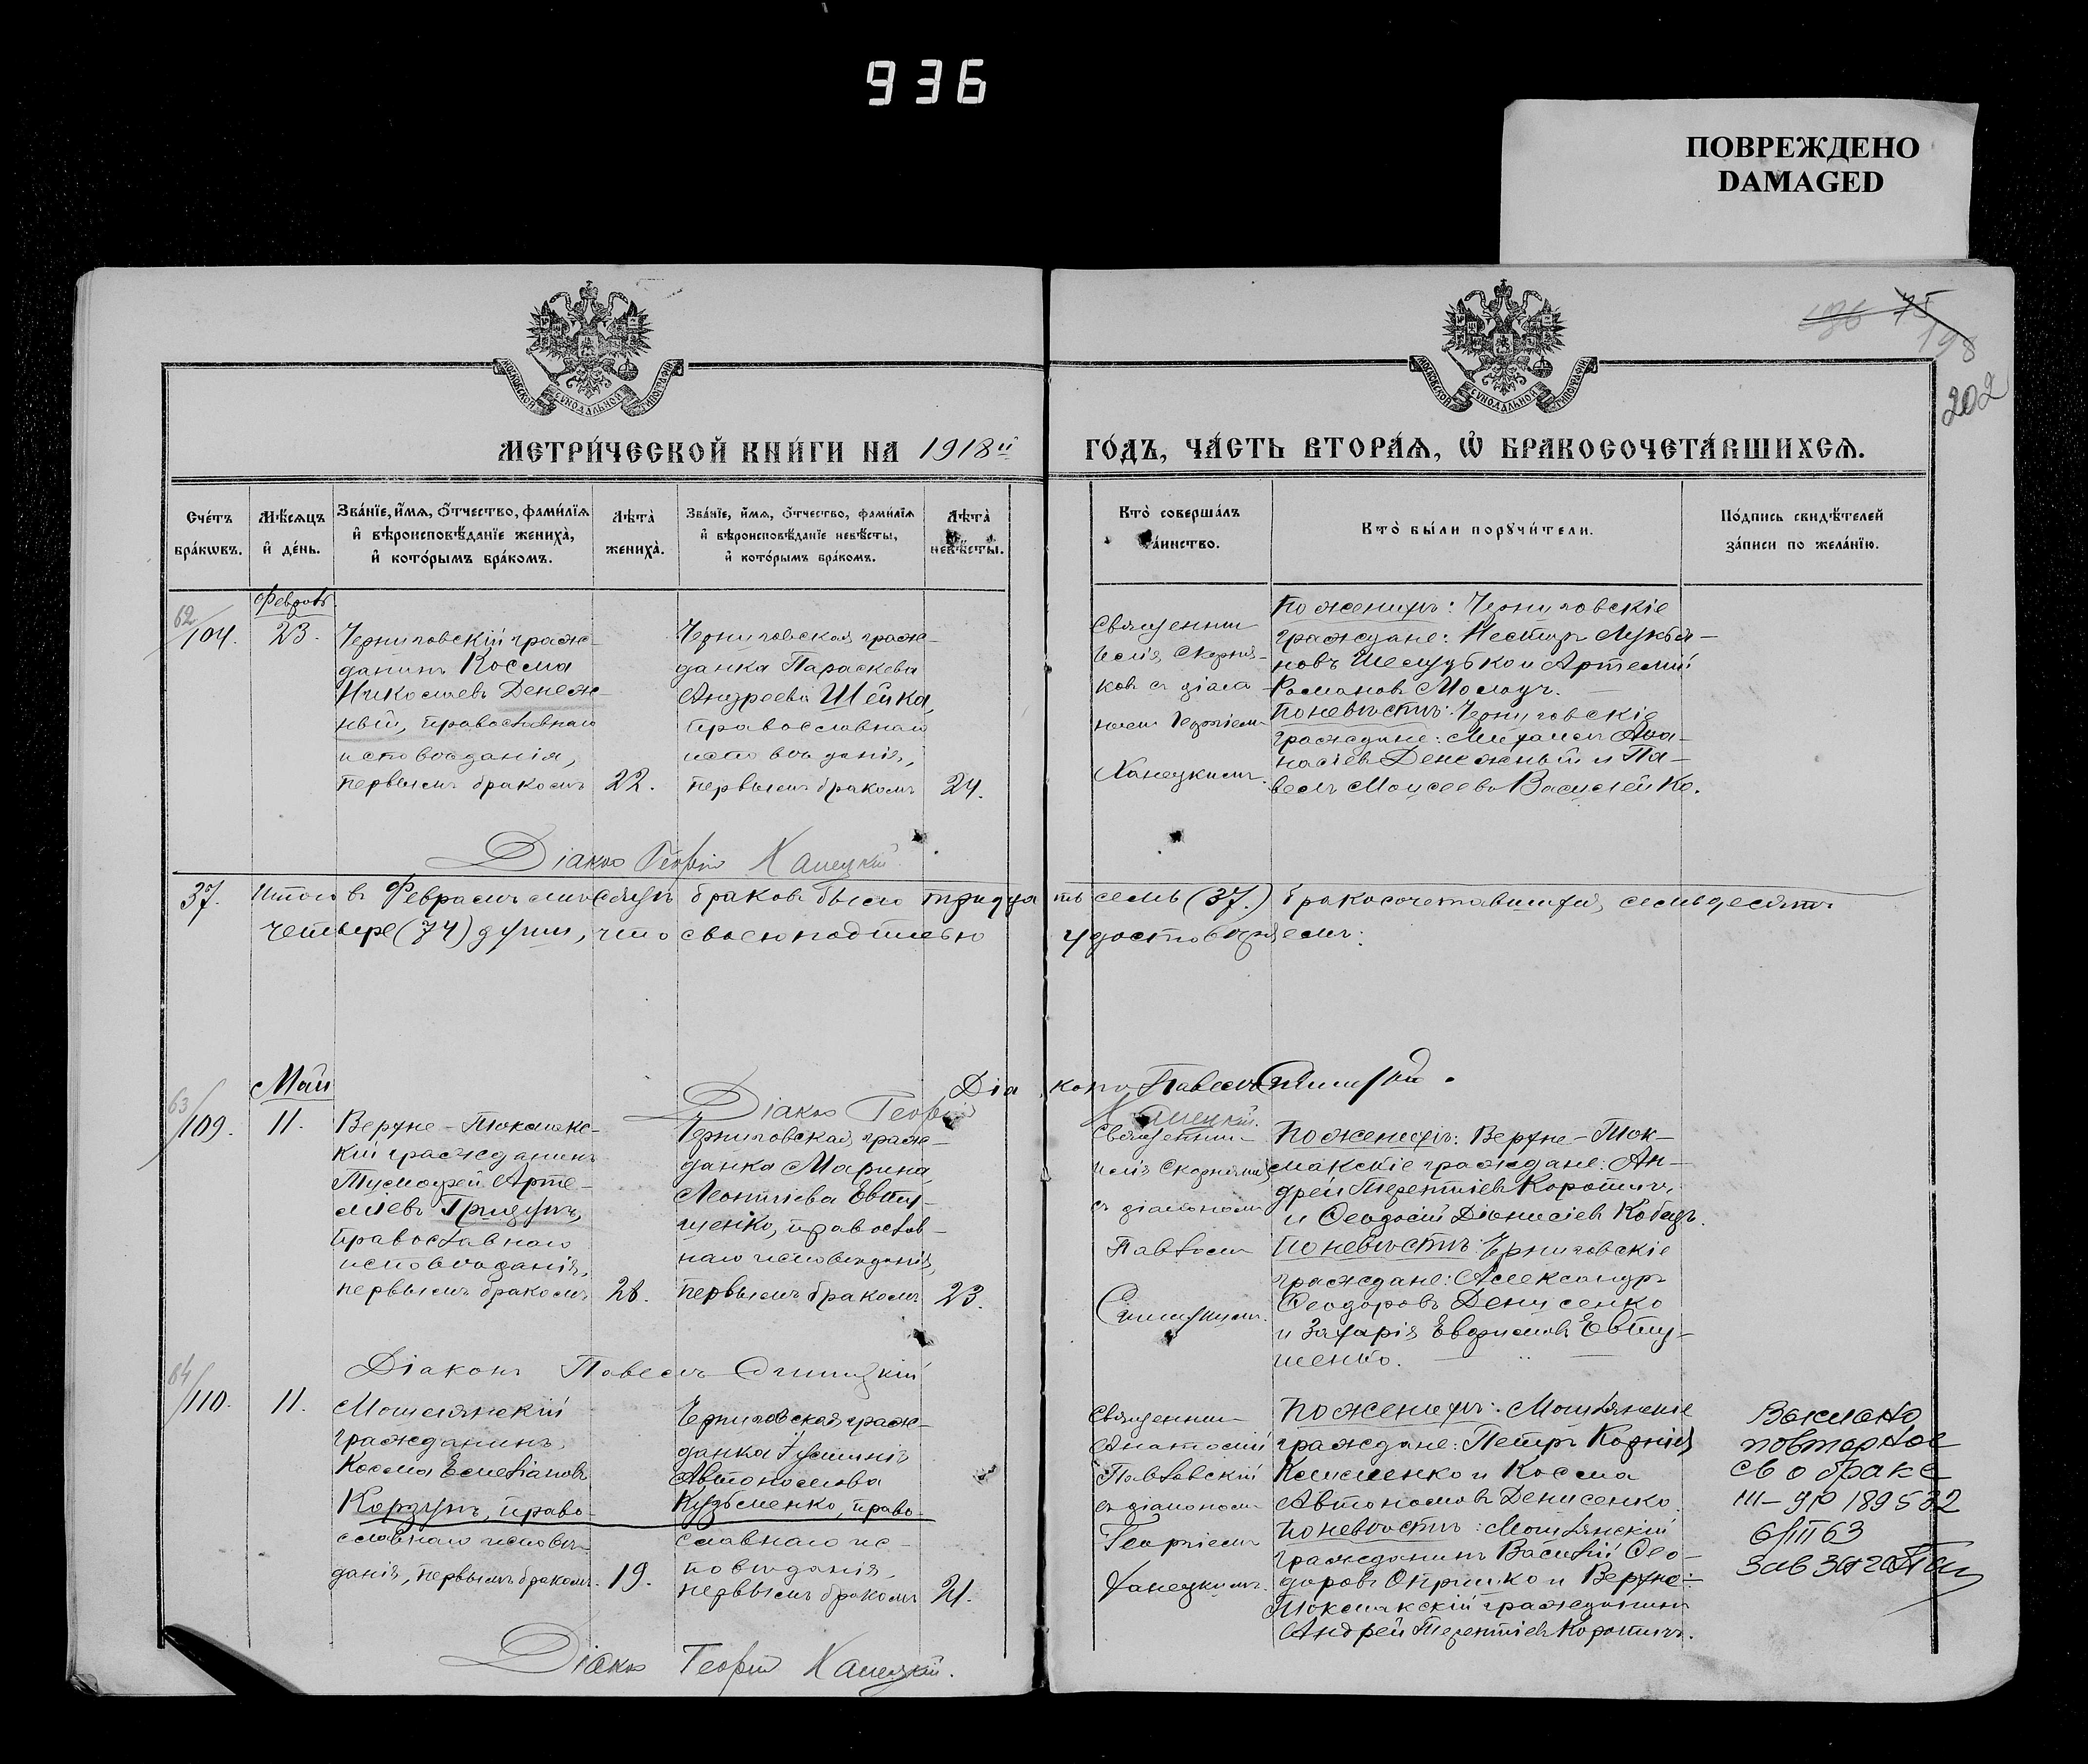 936
ПОВРЕЖДЕНО
DAMAGED
136 75
198
202
МОСКОВСКОЙ СѴНОДАЛЬНОЙ ТИПОГРАФІИ
МОСКОВСКОЙ СѴНОДАЛЬНОЙ ТИПОГРАФІИ
МЕТРИ́ЧЕСКОЙ КНИ́ГИ НА 1918й ГО́ДЪ, ЧА́СТЬ ВТОРА́Ѧ, Ѡ҆ БРАКОСОЧЕТА́ВШИХСѦ.
Сче́тъ
бра́кѡвъ.
Мѣ́сяцъ
и҆ де́нь.
Зва́нїе, и҆́мя, ѻ҆́тчество, фами́лїя
и҆ вѣроисповѣ́данїе жениха̀,
и҆ кото́рымъ бра́комъ.
Лѣта̀
жениха̀.
Зва́нїе, и҆́мя, ѻ҆́тчество, фами́лїя
и҆ вѣроисповѣ́данїе невѣ́сты,
и҆ кото́рымъ бра́комъ.
Лѣта̀
невѣ́сты.
Кто̀ соверша́лъ
та́инство.
Кто̀ бы́ли порꙋчи́тели.
По́дпись свидѣ́телей
за́писи по жела́нїю.
62/104.
Февраль.
23.
Черниговскій граж-
данинъ Косма
Николаевъ Денеж-
ный, православнаго
исповѣданія,
первымъ бракомъ
22.
Черниговская граж-
данка Параскева
Андреева Шейка,
православнаго
исповѣданія,
первымъ бракомъ
24.
Священни
Илія Скорня-
ковъ съ діако
номъ Георгіемъ
Ханецкимъ.
По женихѣ: Черниговскіе
граждане: Несторъ Лукья-
новъ Шелудько и Артемій
Романовъ Молодъ.
По невѣстѣ: Черниговскіе
граждане: Михаилъ Аѳа-
насіевъ Денежный и Па-
велъ Моисеевъ Василейко.
Діаконъ Георгій Ханецкій.
37. Итого въ Февралѣ мѣсяцѣ браковъ было тридцать семь (37.) бракосочетавшихся семьдесятъ
четыре (74) души, что своею подписью удостовѣряемъ:
Діаконъ Павелъ
Діаконъ Георгій Ханецкій.
63/109.
Май
11.
Верхне-Токмакс-
кій гражданинъ
Тимоѳей Арте-
міевъ Гризунъ,
православнаго
исповѣданія,
первымъ бракомъ
28.
Черниговская граж-
данка Марина
Леонтіева Евту-
шенко, православ-
наго исповѣданія,
первымъ бракомъ
23.
Священни-
Илія Скорняковъ
съ діакономъ
Павломъ
По женихѣ: Верхне-Ток-
макскіе граждане: Ан-
дрей Терентіевъ Коротичъ,
и Ѳеодосій Діонисіевъ Кобецъ.
По невѣстѣ: Черниговскіе
граждане: Александръ
Ѳеодоровъ Денисенко
и Захарія Евфимовъ Евту-
шенко.
Діаконъ Павелъ
64/110.
11.
Мошлянскій
гражданинъ
Косма Емеліановъ
Корзунъ, право-
славнаго исповѣ-
данія, первымъ бракомъ.
19.
Черниговская граж-
данка Іустинія
Автономова
Кузьменко, право-
славнаго ис-
повѣданія,
первымъ бракомъ
21.
Священни-
Игнатій
Павловскій
съ діакономъ
Георгіемъ
Ханецкимъ.
По женихѣ: Мошлянскіе
граждане: Петръ Корнія
Клименко и Косма
Автономовъ Денисенко.
По невѣстѣ: Мошлянскій
гражданинъ Василій Ѳео-
доровъ Опришко и Верхне-
Токмакскій гражданинъ
Андрей Терентіевъ Коротичъ.
Выслано
повторное
св о браке
III-УР 189532
6/III 63
Зав Загс
Діаконъ Георгій Ханецкій.